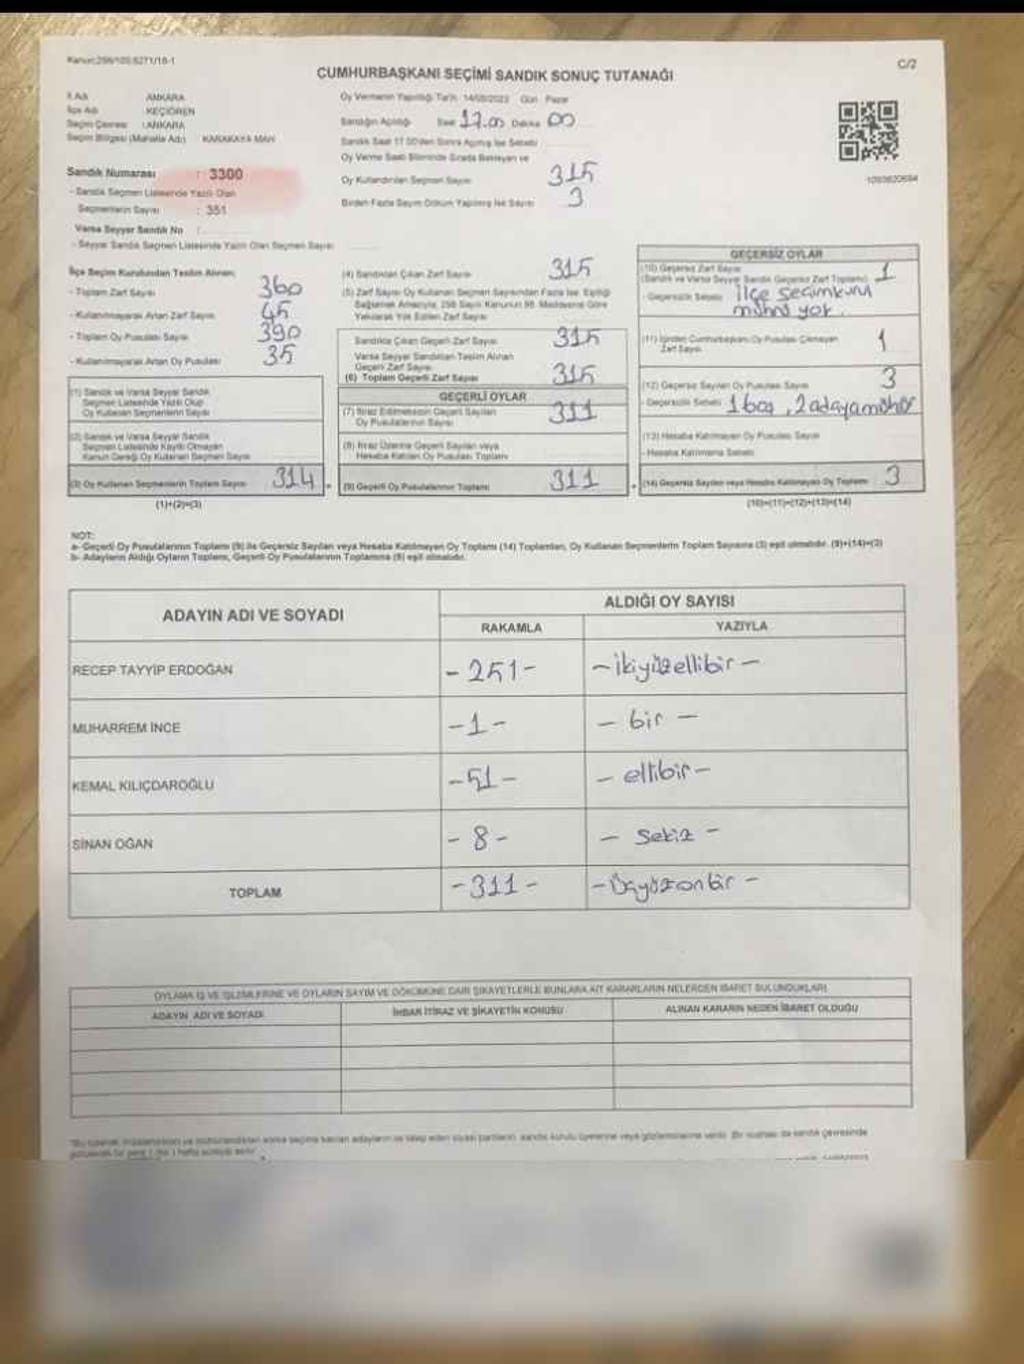 Kanun:298/105,6271/18-1
C/2
CUMHURBAŞKANI SEÇİMİ SANDIK SONUÇ TUTANAĞI
İl Adı ANKARA
İlçe Adı KEÇİÖREN
Seçim Çevresi : ANKARA
Seçim Bölgesi (Mahalle Adı) KARAKAYA MAH
Sandık Numarası : 3300
- Sandık Seçmen Listesinde Yazılı Olan
Seçmenlerin Sayısı : 351
Varsa Seyyar Sandık No :
- Seyyar Sandık Seçmen Listesinde Yazılı Olan Seçmen Sayısı
Oy Vermenin Yapıldığı Tarih 14/05/2023 Gün Pazar
Sandığın Açıldığı Saat 17.00 Dakika 00
Sandık Saat 17.00'den Sonra Açılmış İse Sebebi
Oy Verme Saati Bitiminde Sırada Bekleyen ve
Oy Kullandırılan Seçmen Sayısı 315
Birden Fazla Sayım Döküm Yapılmış İse Sayısı 3
İlçe Seçim Kurulundan Teslim Alınan:
- Toplam Zarf Sayısı 360
- Kullanılmayarak Artan Zarf Sayısı 45
- Toplam Oy Pusulası Sayısı 390
- Kullanılmayarak Artan Oy Pusulası 35
(1) Sandık ve Varsa Seyyar Sandık
Seçmen Listesinde Yazılı Olup
Oy Kullanan Seçmenlerin Sayısı
(2) Sandık ve Varsa Seyyar Sandık
Seçmen Listesinde Kayıtlı Olmayan
Kanun Gereği Oy Kullanan Seçmen Sayısı
(3) Oy Kullanan Seçmenlerin Toplam Sayısı 314
(1)+(2)=(3)
(4) Sandıktan Çıkan Zarf Sayısı 315
(5) Zarf Sayısı Oy Kullanan Seçmen Sayısından Fazla İse, Eşitliği
Sağlamak Amacıyla, 298 Sayılı Kanunun 98. Maddesine Göre
Yakılarak Yok Edilen Zarf Sayısı
Sandıkta Çıkan Geçerli Zarf Sayısı 315
Varsa Seyyar Sandıktan Teslim Alınan
Geçerli Zarf Sayısı
(6) Toplam Geçerli Zarf Sayısı 315
GEÇERLİ OYLAR
(7) İtiraz Edilmeksizin Geçerli Sayılan
Oy Pusulalarının Sayısı 311
(8) İtiraz Üzerine Geçerli Sayılan veya
Hesaba Katılan Oy Pusulası Toplamı
(9) Geçerli Oy Pusulalarının Toplamı 311
GEÇERSİZ OYLAR
(10) Geçersiz Zarf Sayısı
(Sandık ve Varsa Seyyar Sandık Geçersiz Zarf Toplamı) 1
- Geçersizlik Sebebi ilçe seçimkuru
mührü yok.
(11) İçinden Cumhurbaşkanı Oy Pusulası Çıkmayan
Zarf Sayısı 1
(12) Geçersiz Sayılan Oy Pusulası Sayısı 3
- Geçersizlik Sebebi 1 boş, 2 adaya mühür
(13) Hesaba Katılmayan Oy Pusulası Sayısı
- Hesaba Katılmama Sebebi
(14) Geçersiz Sayılan veya Hesaba Katılmayan Oy Toplamı 3
(10)+(11)+(12)+(13)=(14)
NOT:
a- Geçerli Oy Pusulalarının Toplamı (9) ile Geçersiz Sayılan veya Hesaba Katılmayan Oy Toplamı (14) Toplamları, Oy Kullanan Seçmenlerin Toplam Sayısına (3) eşit olmalıdır. (9)+(14)=(3)
b- Adayların Aldığı Oyların Toplamı, Geçerli Oy Pusulalarının Toplamına (9) eşit olmalıdır.
ADAYIN ADI VE SOYADI
ALDIĞI OY SAYISI
RAKAMLA YAZIYLA
RECEP TAYYİP ERDOĞAN -251- -ikiyüzellibir-
MUHARREM İNCE -1- - bir -
KEMAL KILIÇDAROĞLU -51- - ellibir-
SİNAN OĞAN -8- - Sekiz -
TOPLAM -311- -Üçyüzonbir -
OYLAMA İŞ VE İŞLEMLERİNE VE OYLARIN SAYIM VE DÖKÜMÜNE DAİR ŞİKAYETLERLE BUNLARA AİT KARARLARIN NELERDEN İBARET BULUNDUKLARI
ADAYIN ADI VE SOYADI
İHBAR İTİRAZ VE ŞİKAYETİN KONUSU
ALINAN KARARIN NEDEN İBARET OLDUĞU